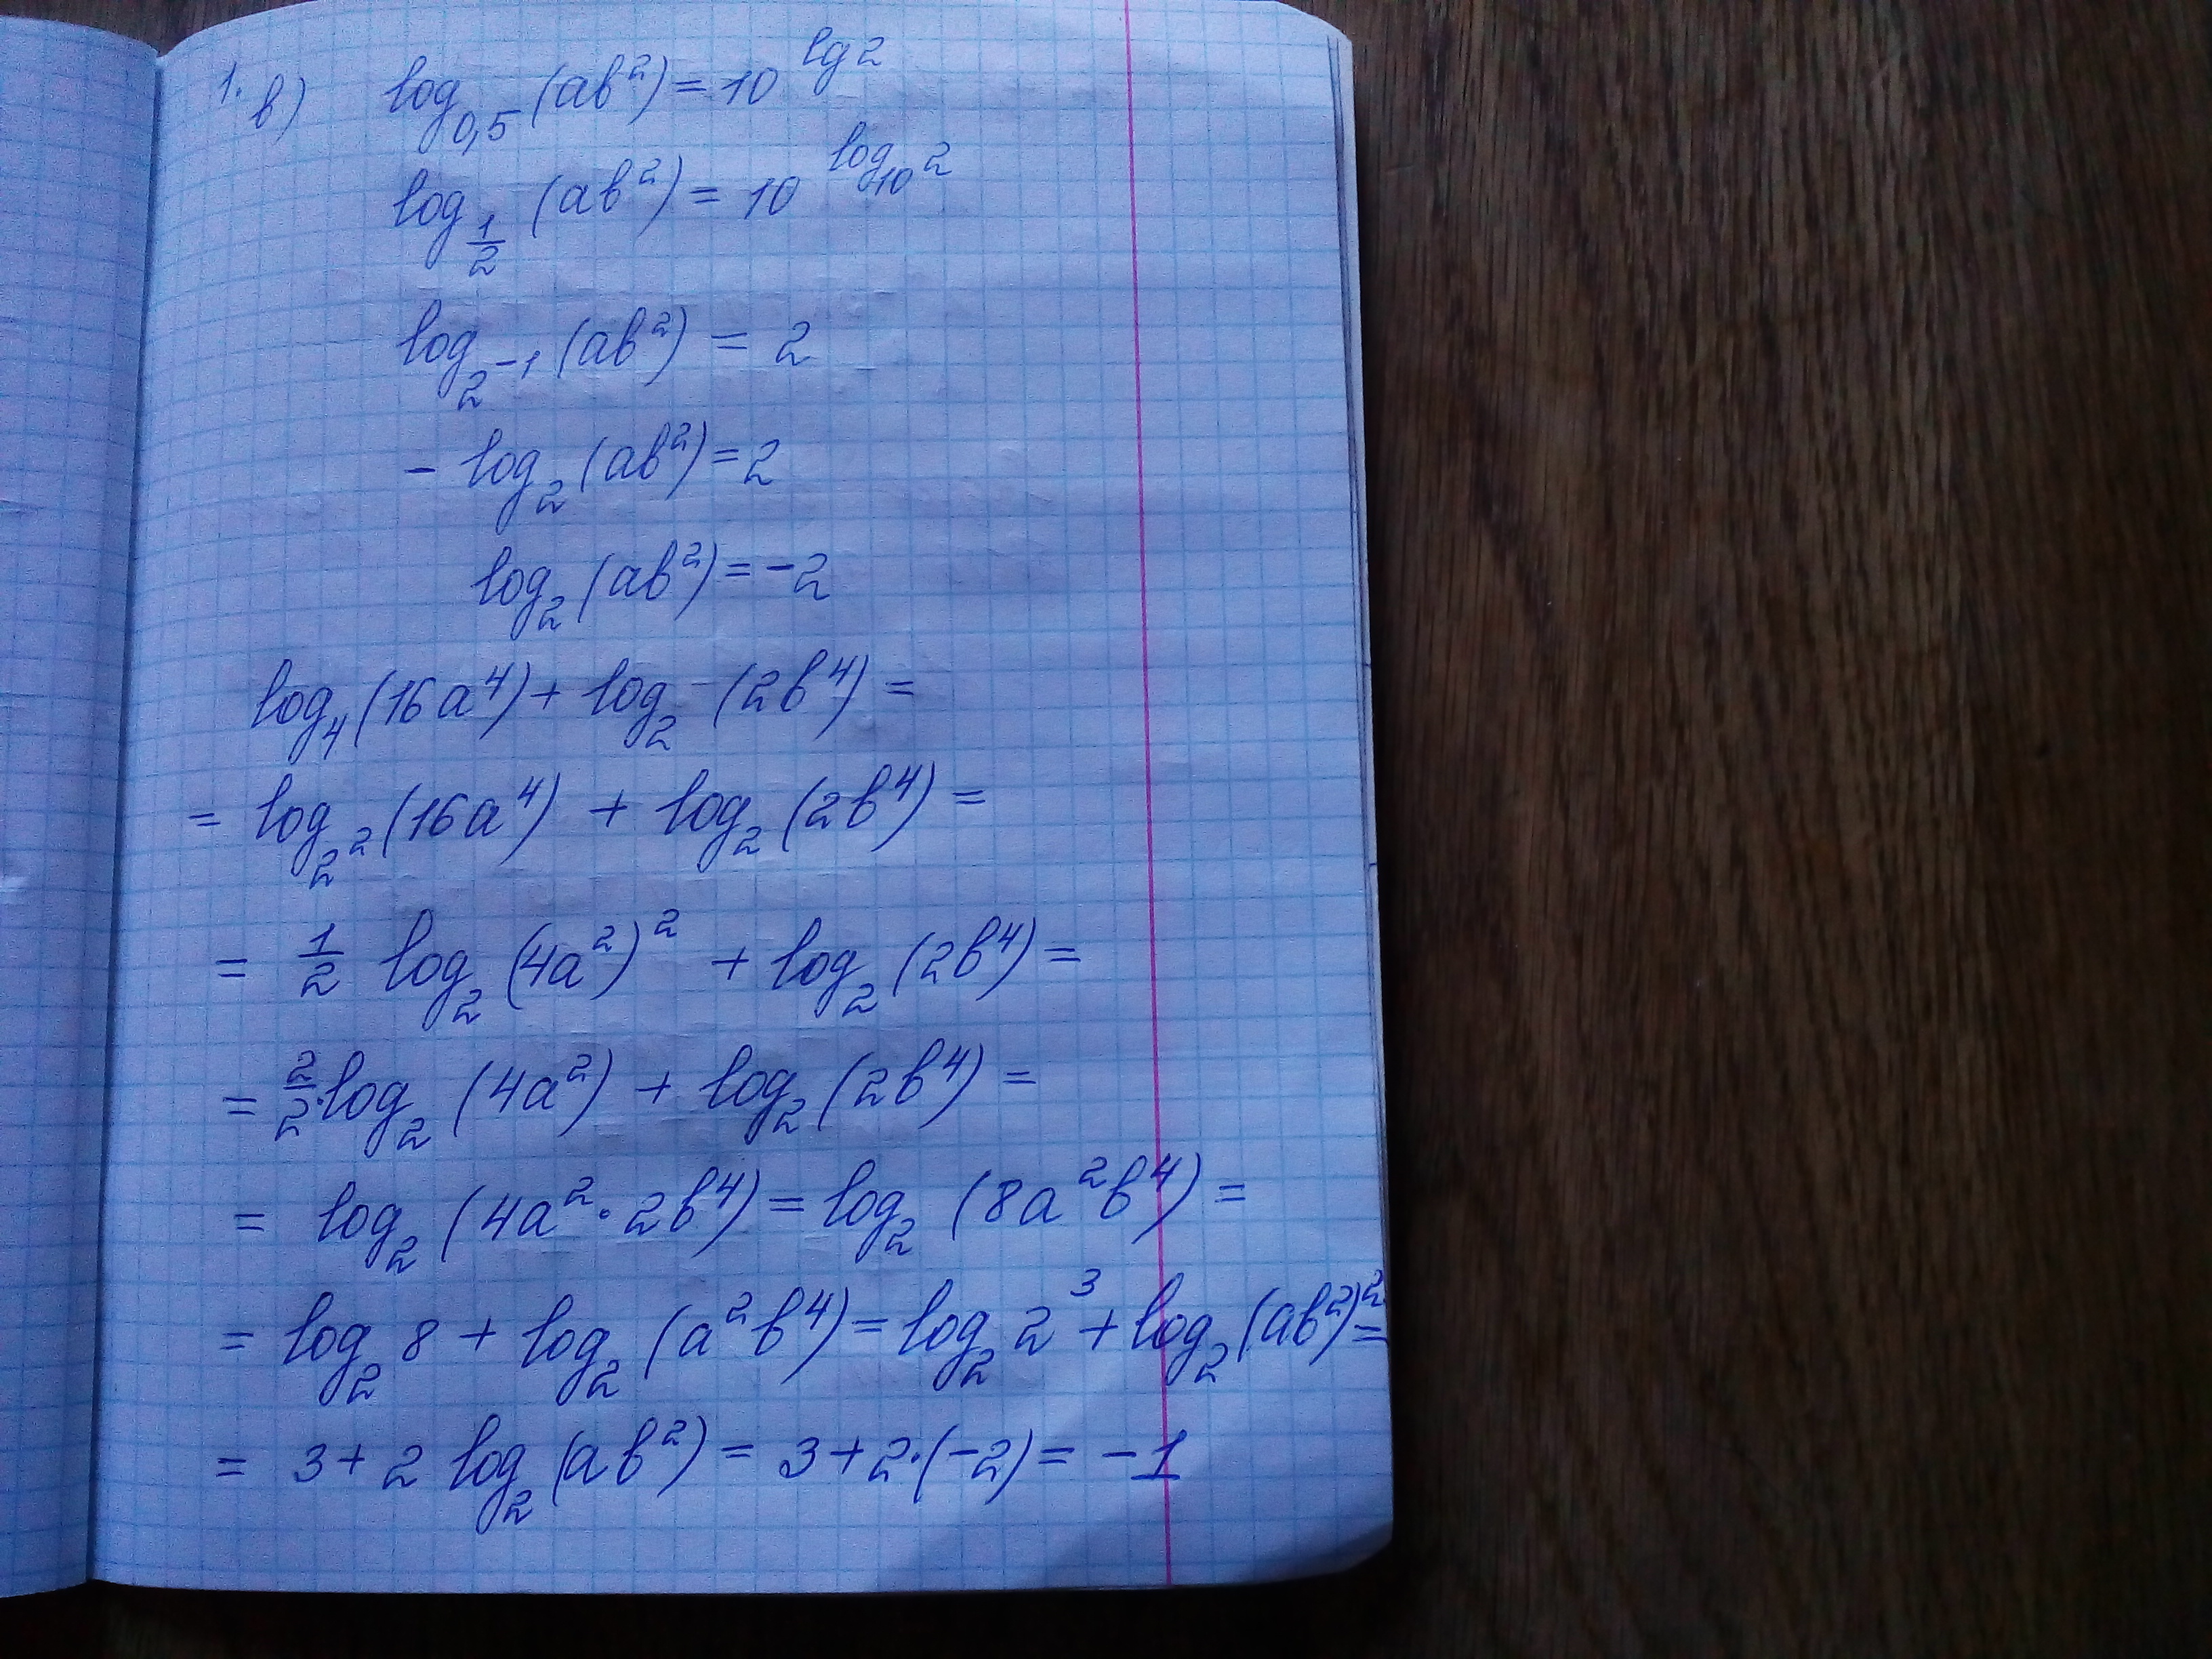 1. в) log_{0,5} (ab^2) = 10^{lg 2}
log_{1/2} (ab^2) = 10^{log_{10} 2}
log_{2^{-1}} (ab^2) = 2
- log_2 (ab^2) = 2
log_2 (ab^2) = -2
log_4 (16a^4) + log_2 (2b^4) =
= log_{2^2} (16a^4) + log_2 (2b^4) =
= 1/2 log_2 (4a^2)^2 + log_2 (2b^4) =
= 2/2 · log_2 (4a^2) + log_2 (2b^4) =
= log_2 (4a^2 · 2b^4) = log_2 (8a^2b^4) =
= log_2 8 + log_2 (a^2b^4) = log_2 2^3 + log_2 (ab^2)^2 =
= 3 + 2 log_2 (ab^2) = 3 + 2·(-2) = -1